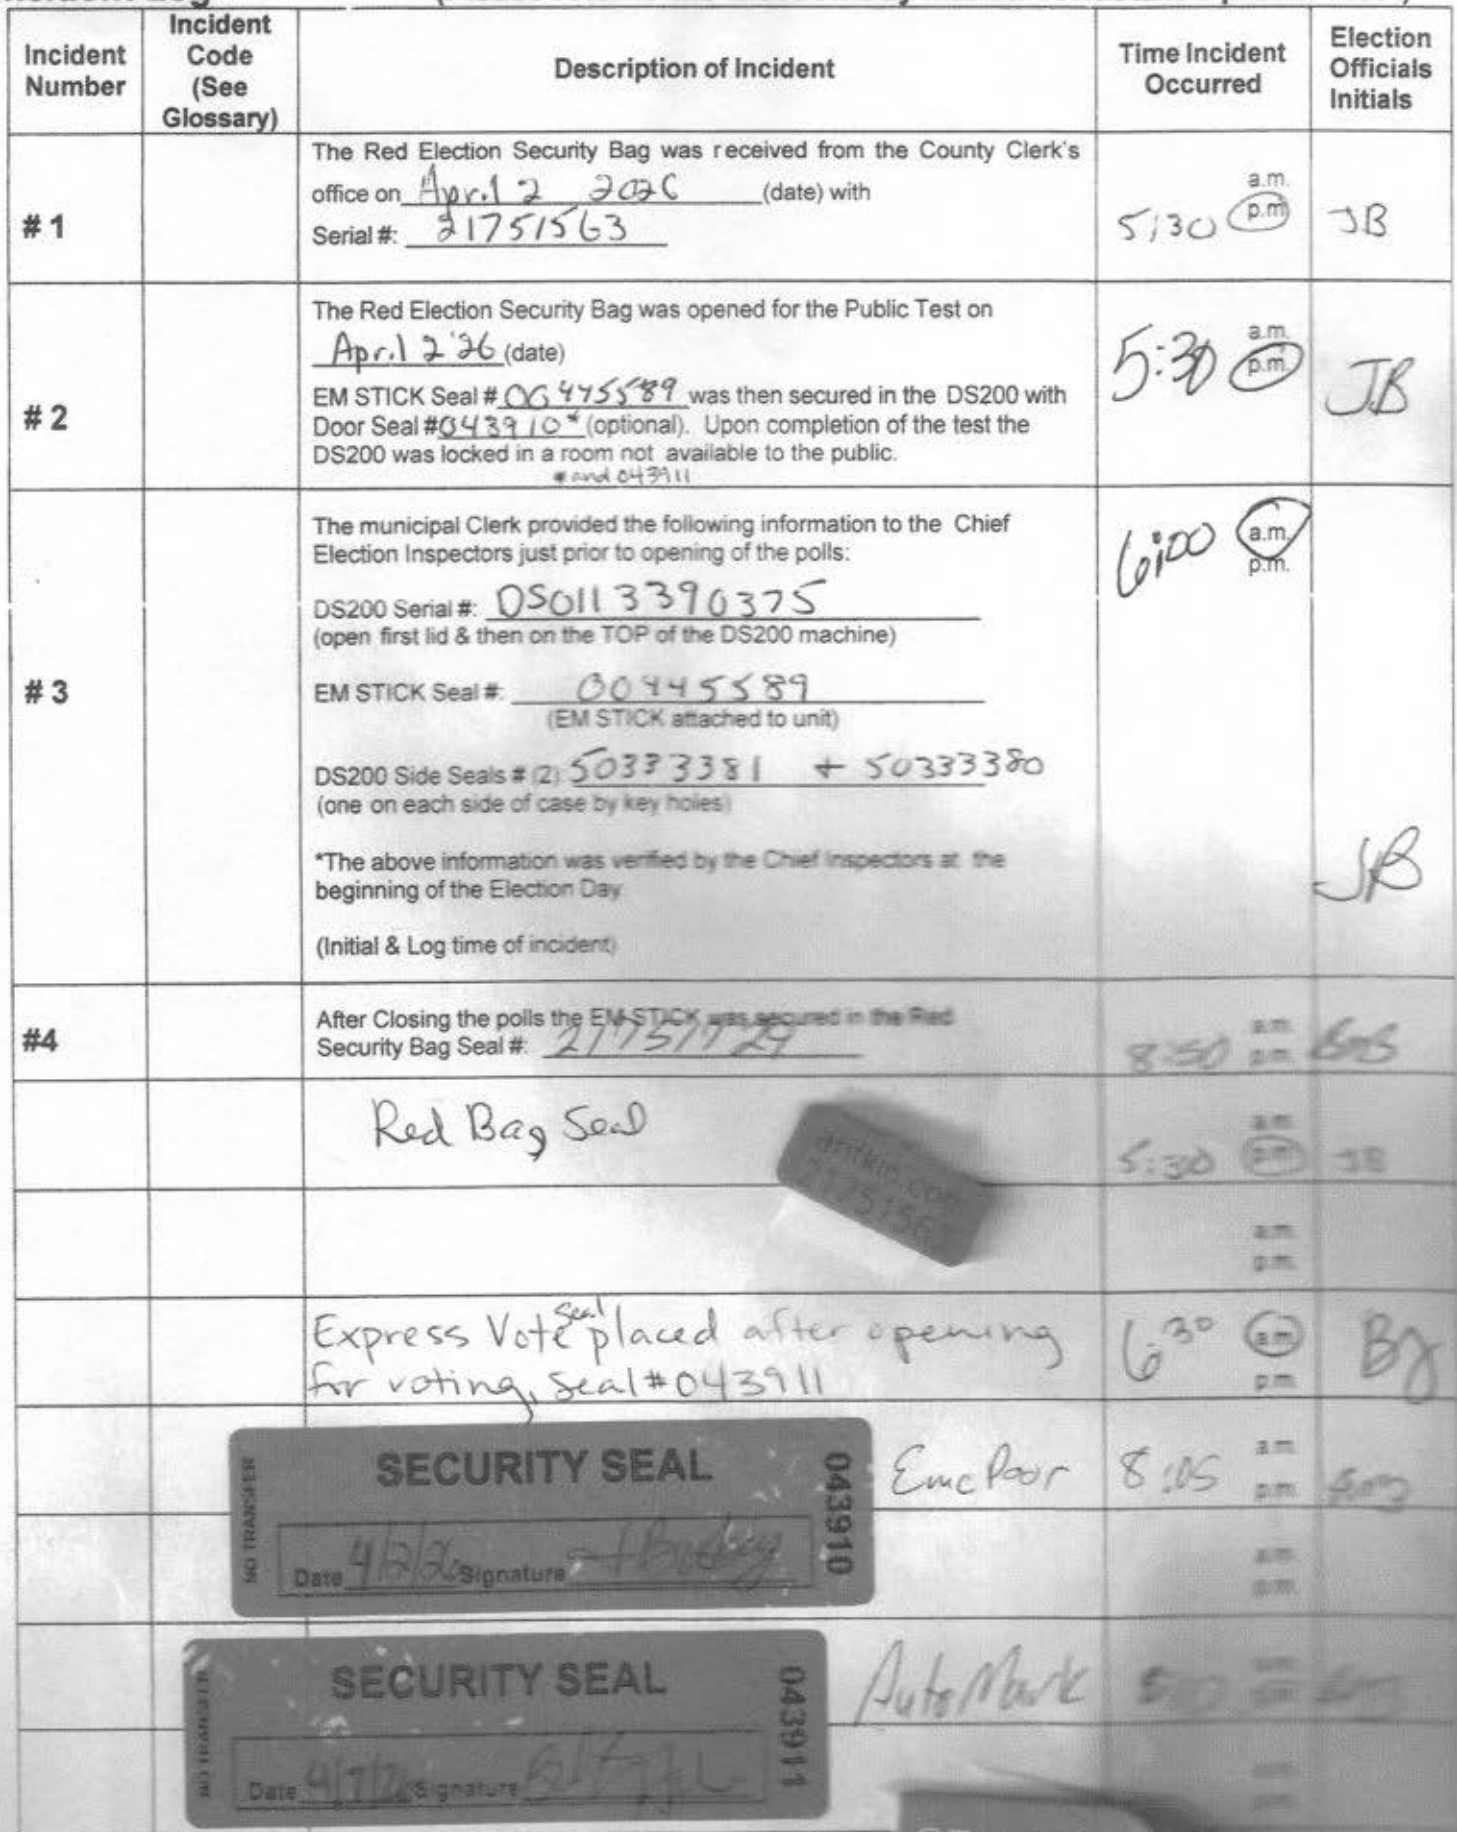 Incident Number
Incident Code (See Glossary)
Description of Incident
Time Incident Occurred
Election Officials Initials
# 1
The Red Election Security Bag was received from the County Clerk's
office on April 2 2026 (date) with
Serial #: 21751563
5:30 a.m. p.m
JB
# 2
The Red Election Security Bag was opened for the Public Test on
April 2 '26 (date)
EM STICK Seal # 00445589 was then secured in the DS200 with
Door Seal #043910* (optional). Upon completion of the test the
DS200 was locked in a room not available to the public.
* and 043911
5:30 a.m. p.m.
JB
# 3
The municipal Clerk provided the following information to the Chief
Election Inspectors just prior to opening of the polls:
DS200 Serial #: DS0113390375
(open first lid & then on the TOP of the DS200 machine)
EM STICK Seal #: 00445589
(EM STICK attached to unit)
DS200 Side Seals # (2) 50333381 + 50333380
(one on each side of case by key holes)
*The above information was verified by the Chief Inspectors at the
beginning of the Election Day
(Initial & Log time of incident)
6:00 a.m. p.m.
JB
#4
After Closing the polls the EM STICK was secured in the Red
Security Bag Seal #: 21751729
8:50 a.m. p.m.
Red Bag Seal
5:30 a.m. p.m.
JB
a.m.
p.m.
Express Vote seal placed after opening
for voting, seal # 043911
6:30 a.m. p.m.
BJ
SECURITY SEAL
NO TRANSFER
043910
Date 4/2/26 Signature
Door 8:05 a.m. p.m.
a.m.
p.m.
SECURITY SEAL
NO TRANSFER
043911
Date 4/7/26 Signature
AutoMark